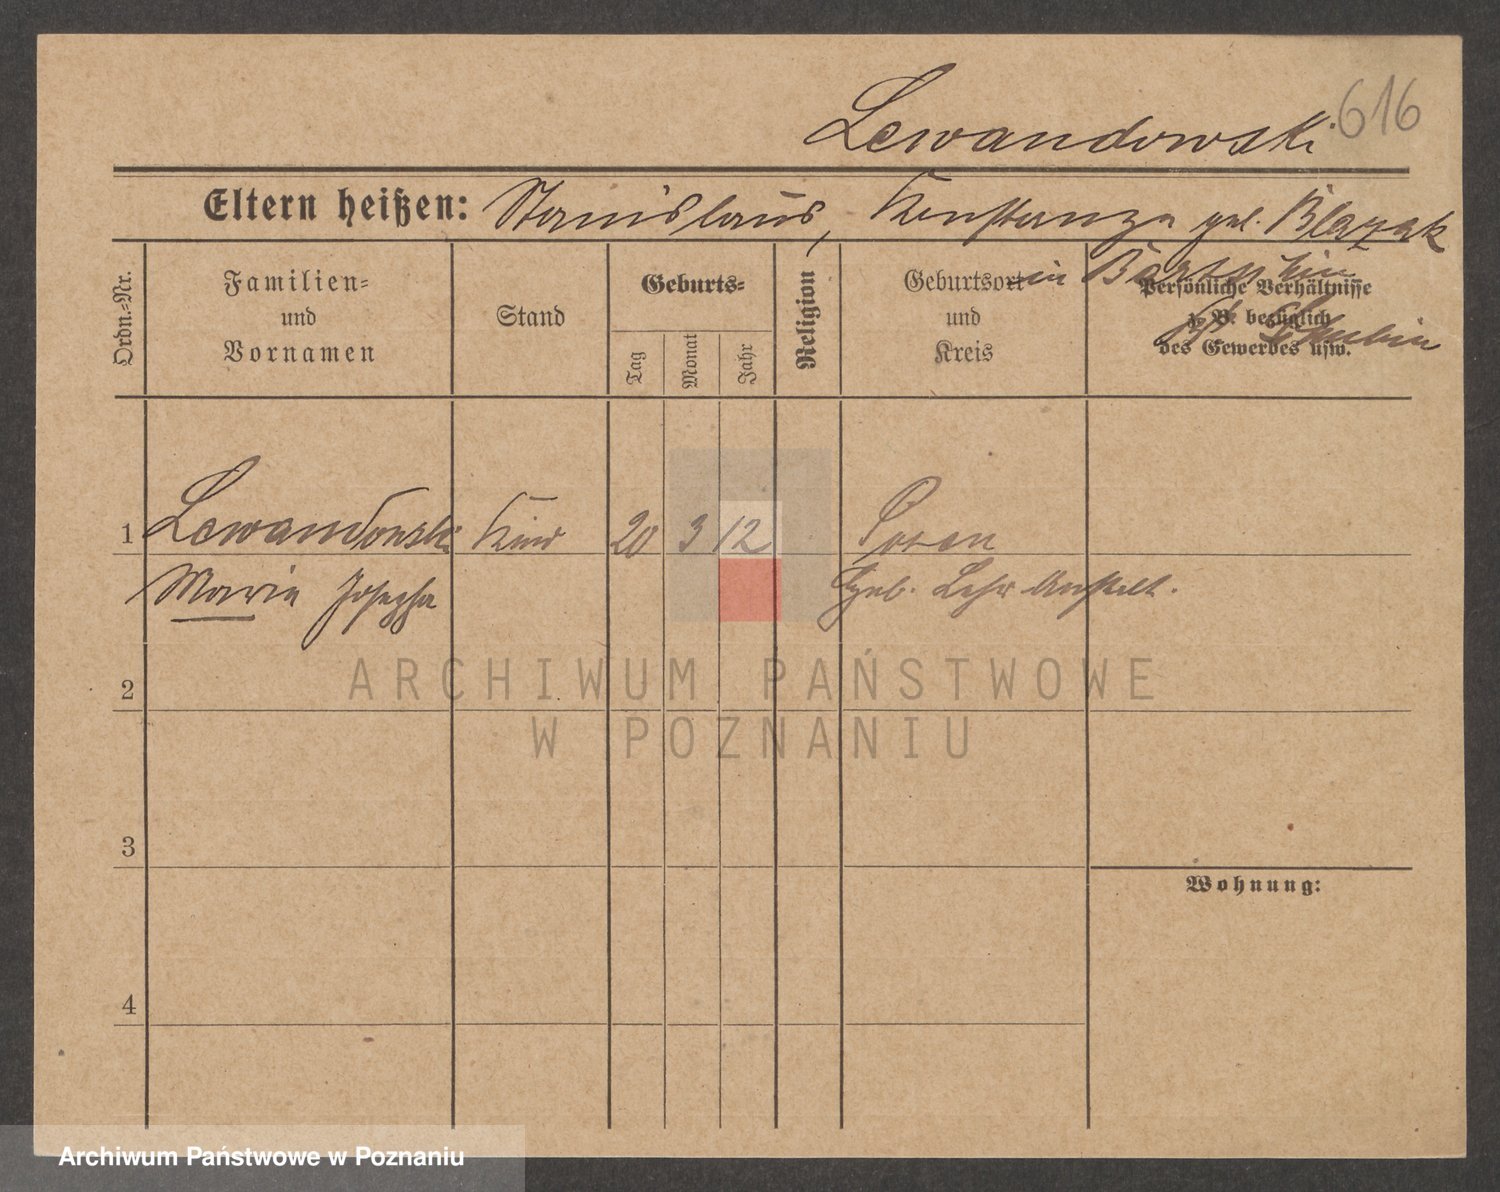 Lewandowski 616
Eltern heißen: Stanislaus, Konstanza geb. Blazak
in Bartschin
Kr. Schubin
Ordn.-Nr.
Familien-
und
Vornamen
Stand
Geburts-
Tag
Monat
Jahr
Religion
Geburtsort
und
Kreis
Persönliche Verhältnisse
z. B. bezüglich
des Gewerbes usw.
1 Lewandowski Kind 20 3 12 Posen
Marie Josepha Geb. Lehr Anstalt.
2
3
Wohnung:
4
ARCHIWUM PAŃSTWOWE
W POZNANIU
Archiwum Państwowe w Poznaniu